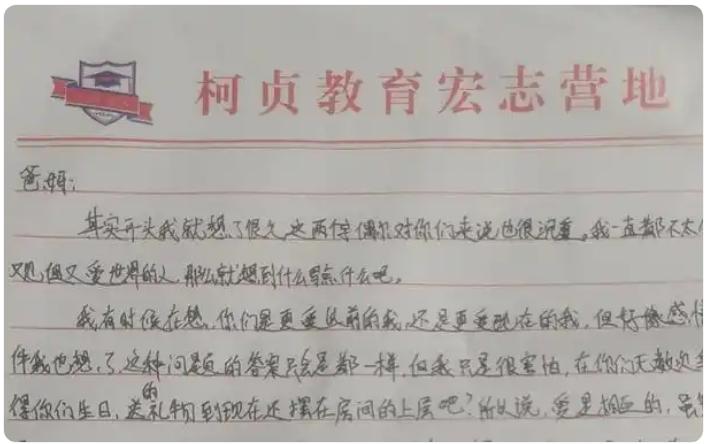 柯贞教育宏志营地
爸妈:
其实开头我就想了很久,这两个字偶尔对你们来说也很沉重。我一直都不太
又但又爱世界的人,那么就想到什么写点什么吧。
我有时候在想,你们是更爱以前的我,还是更爱现在的我,但好像感情
件我也想,了这种问题的答案只会是都一样,但我只是很害怕,在你们无数次
得你们生日,送的礼物到现在还摆在房间的上层吧?所以说,爱是相互的,虽